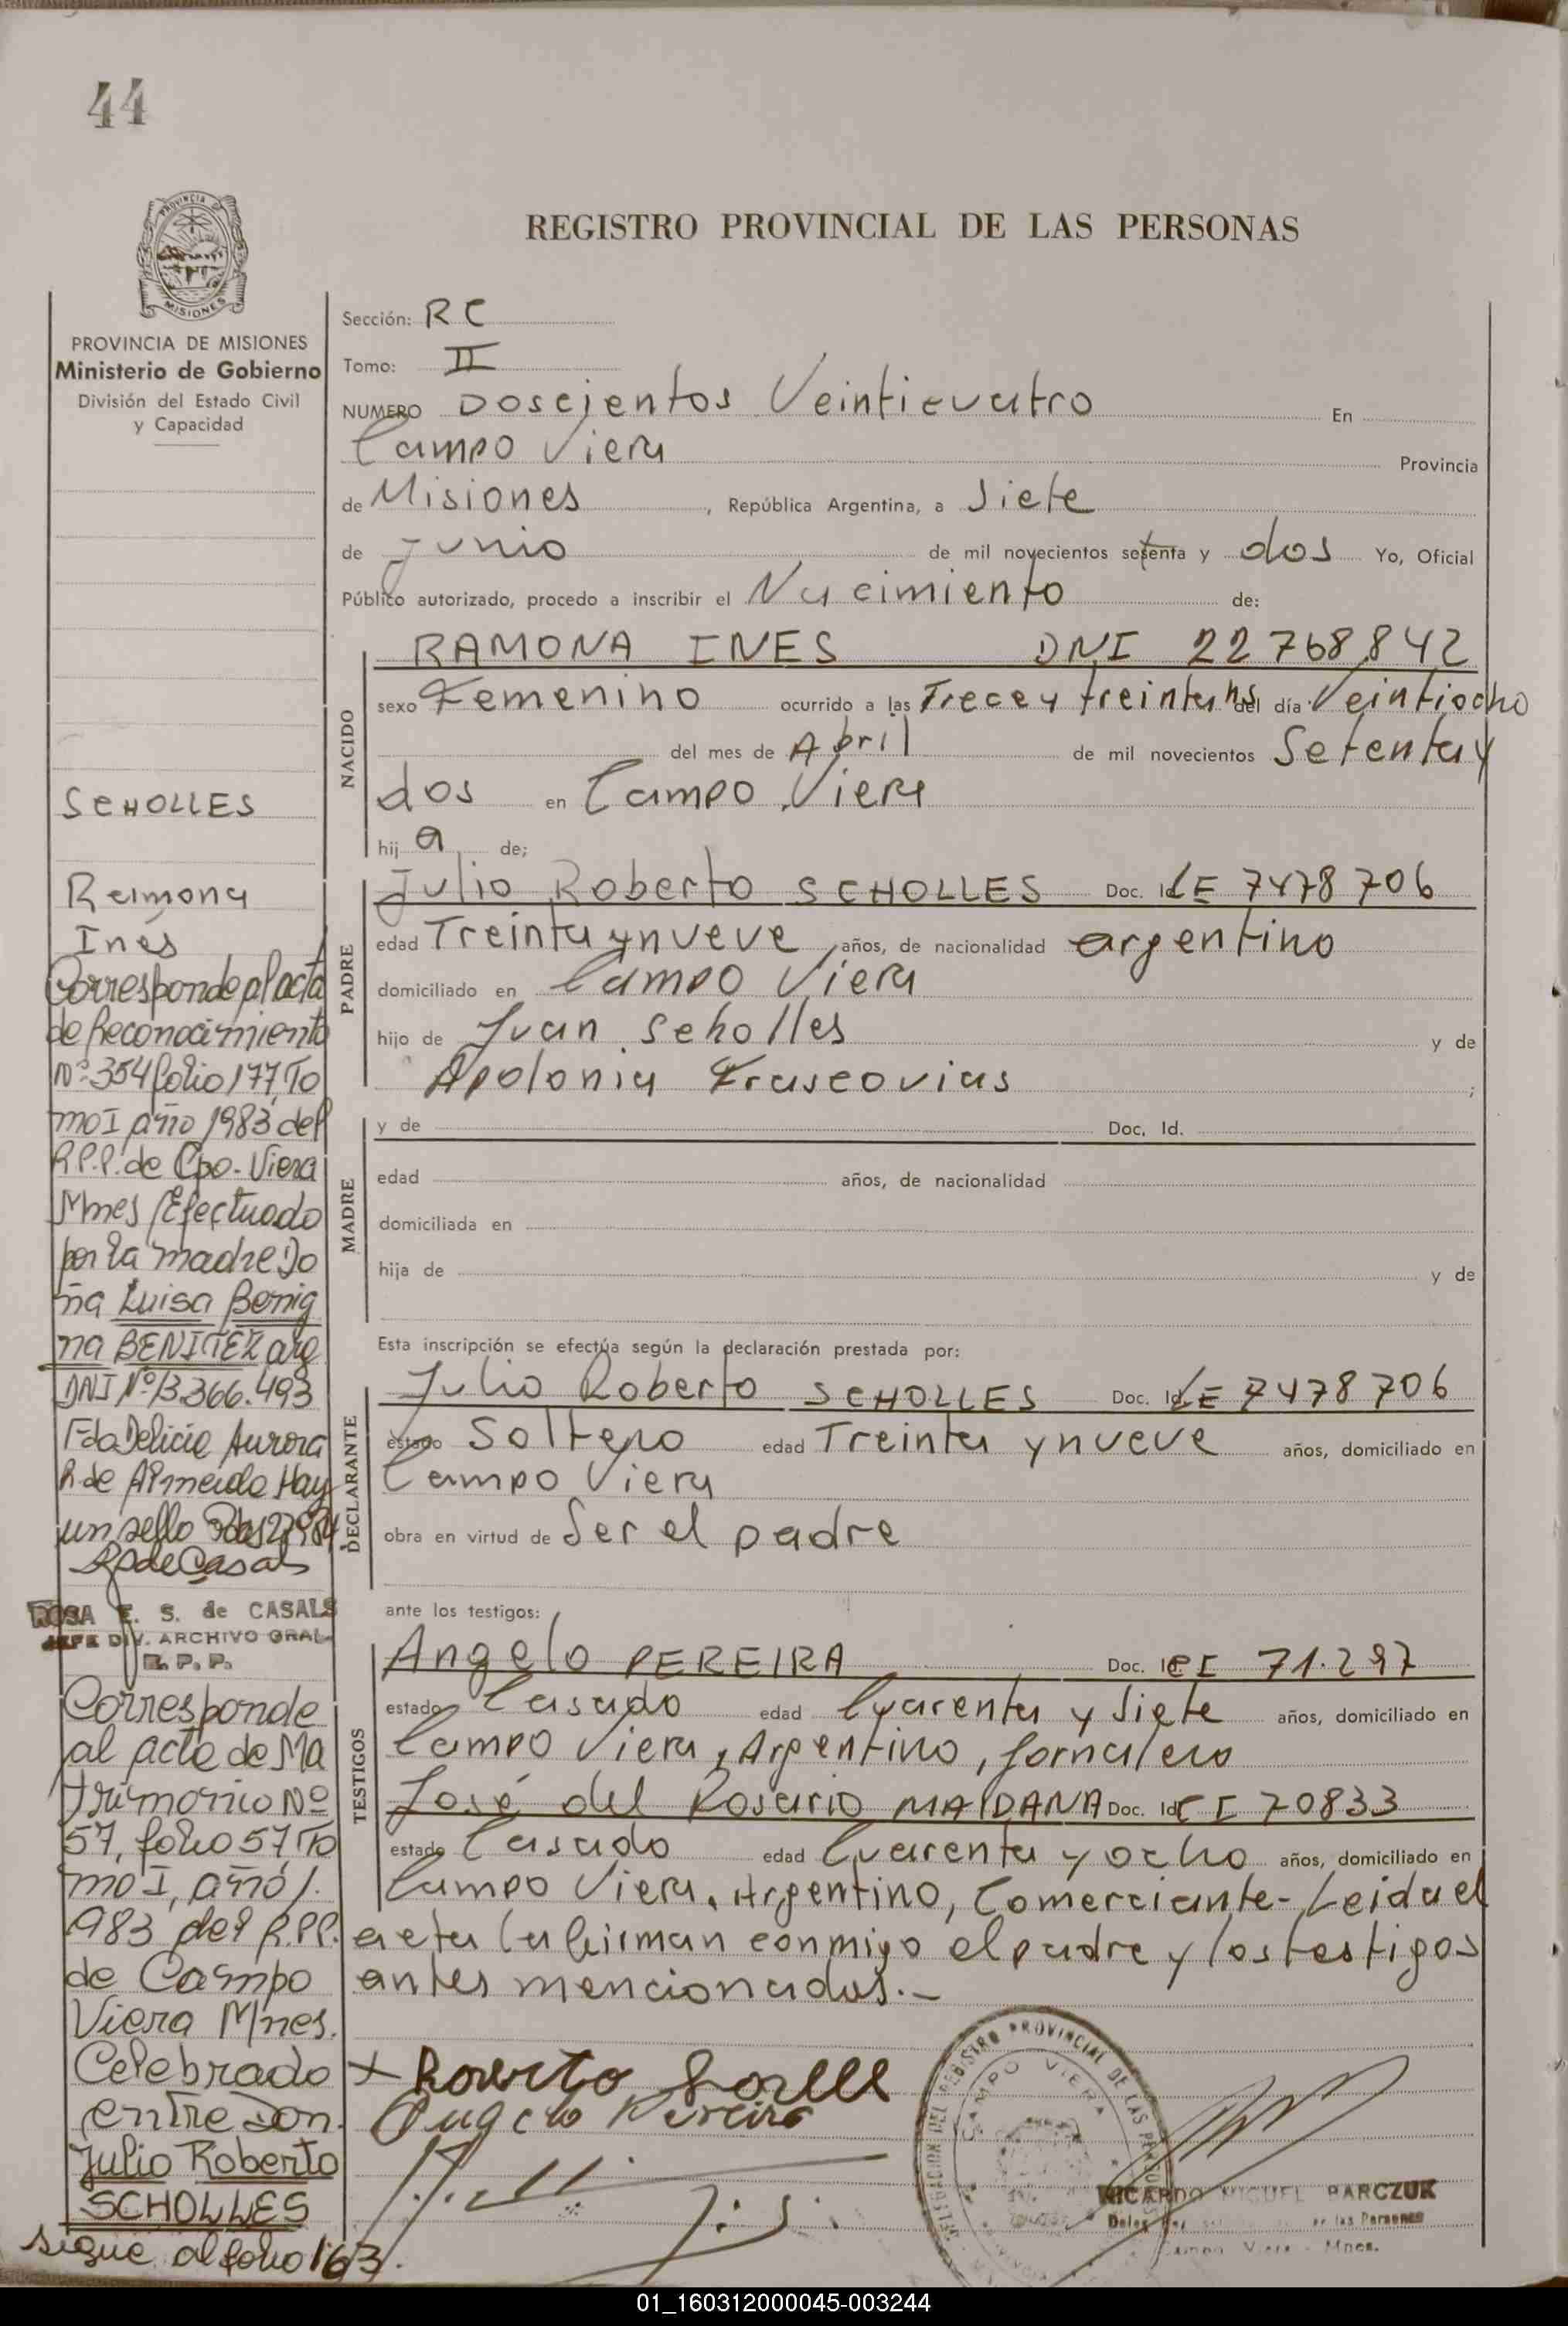 44
PROVINCIA
MISIONES
PROVINCIA DE MISIONES
Ministerio de Gobierno
División del Estado Civil
y Capacidad
SCHOLLES
Ramona
Inés
Corresponde al acta
de Reconocimiento
Nº 354 folio 177, To
mo I año 1983 del
R.P.P. de Cpo. Viera
Mnes Efectuado
por la madre Do
ña Luisa Benig
na BENITEZ arg
DNI Nº 13.366.493
Fdo Delicie Aurora
R. de Almeida Hay
un sello Pdas
RSdeCasals
ROSA E. S. de CASALS
JEFE DIV. ARCHIVO GRAL.
R. P. P.
Corresponde
al acta de Ma
trimonio Nº
57, folio 57 To
mo I, año 1.
983 del R.P.P.
de Campo
Viera Mnes.
Celebrado
entre Don.
Julio Roberto
SCHOLLES
sigue al folio 163.
REGISTRO PROVINCIAL DE LAS PERSONAS
Sección: RC
Tomo: II
NUMERO Doscientos Veinticuatro En
Campo Viera Provincia
de Misiones, República Argentina, a Siete
de Junio de mil novecientos setenta y dos Yo, Oficial
Público autorizado, procedo a inscribir el Nacimiento de:
NACIDO
RAMONA INES DNI 22768842
sexo Femenino ocurrido a las Trece y treinta hs del día Veintiocho
del mes de Abril de mil novecientos Setenta y
dos en Campo Viera
hij a de;
PADRE
Julio Roberto SCHOLLES Doc. Id. LE 7478706
edad Treinta y nueve años, de nacionalidad argentino
domiciliado en Campo Viera
hijo de Juan Scholles y de
Apolonia Frascovias ;
MADRE
y de Doc. Id.
edad años, de nacionalidad
domiciliada en
hija de y de
Esta inscripción se efectúa según la declaración prestada por:
DECLARANTE
Julio Roberto SCHOLLES Doc. Id. LE 7478706
estado Soltero edad Treinta y nueve años, domiciliado en
Campo Viera
obra en virtud de Ser el padre
ante los testigos:
TESTIGOS
Angelo PEREIRA Doc. Id. CI 71.297
estado Casado edad Cuarenta y Siete años, domiciliado en
Campo Viera, Argentino, Jornalero
José del Rosario MAIDANA Doc. Id. CI 70833
estado Casado edad Cuarenta y ocho años, domiciliado en
Campo Viera, Argentino, Comerciante- Leida el
acta la firman conmigo el padre y los testigos
antes mencionados.-
x Roberto
Angelo Pereira
REGISTRO PROVINCIAL DE LAS PERSONAS
CAMPO VIERA
RICARDO MIGUEL PARCZUK
de las Personas
Campo Viera - Mnes.
01_160312000045-003244